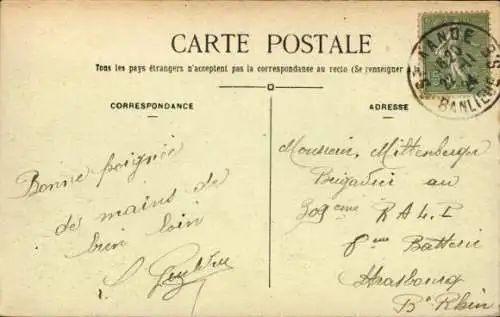 CARTE POSTALE
Tous les pays étrangers n'acceptent pas la correspondance au recto (Se renseigner
CORRESPONDANCE
ADRESSE
Bonne poignée
de mains de
bien loin
Monsieur Mittenberger
Brigadier au
309eme R A L P
8eme Batterie
Strasbourg
Bs Rhin
ST MANDÉ
24
BANLIEUE